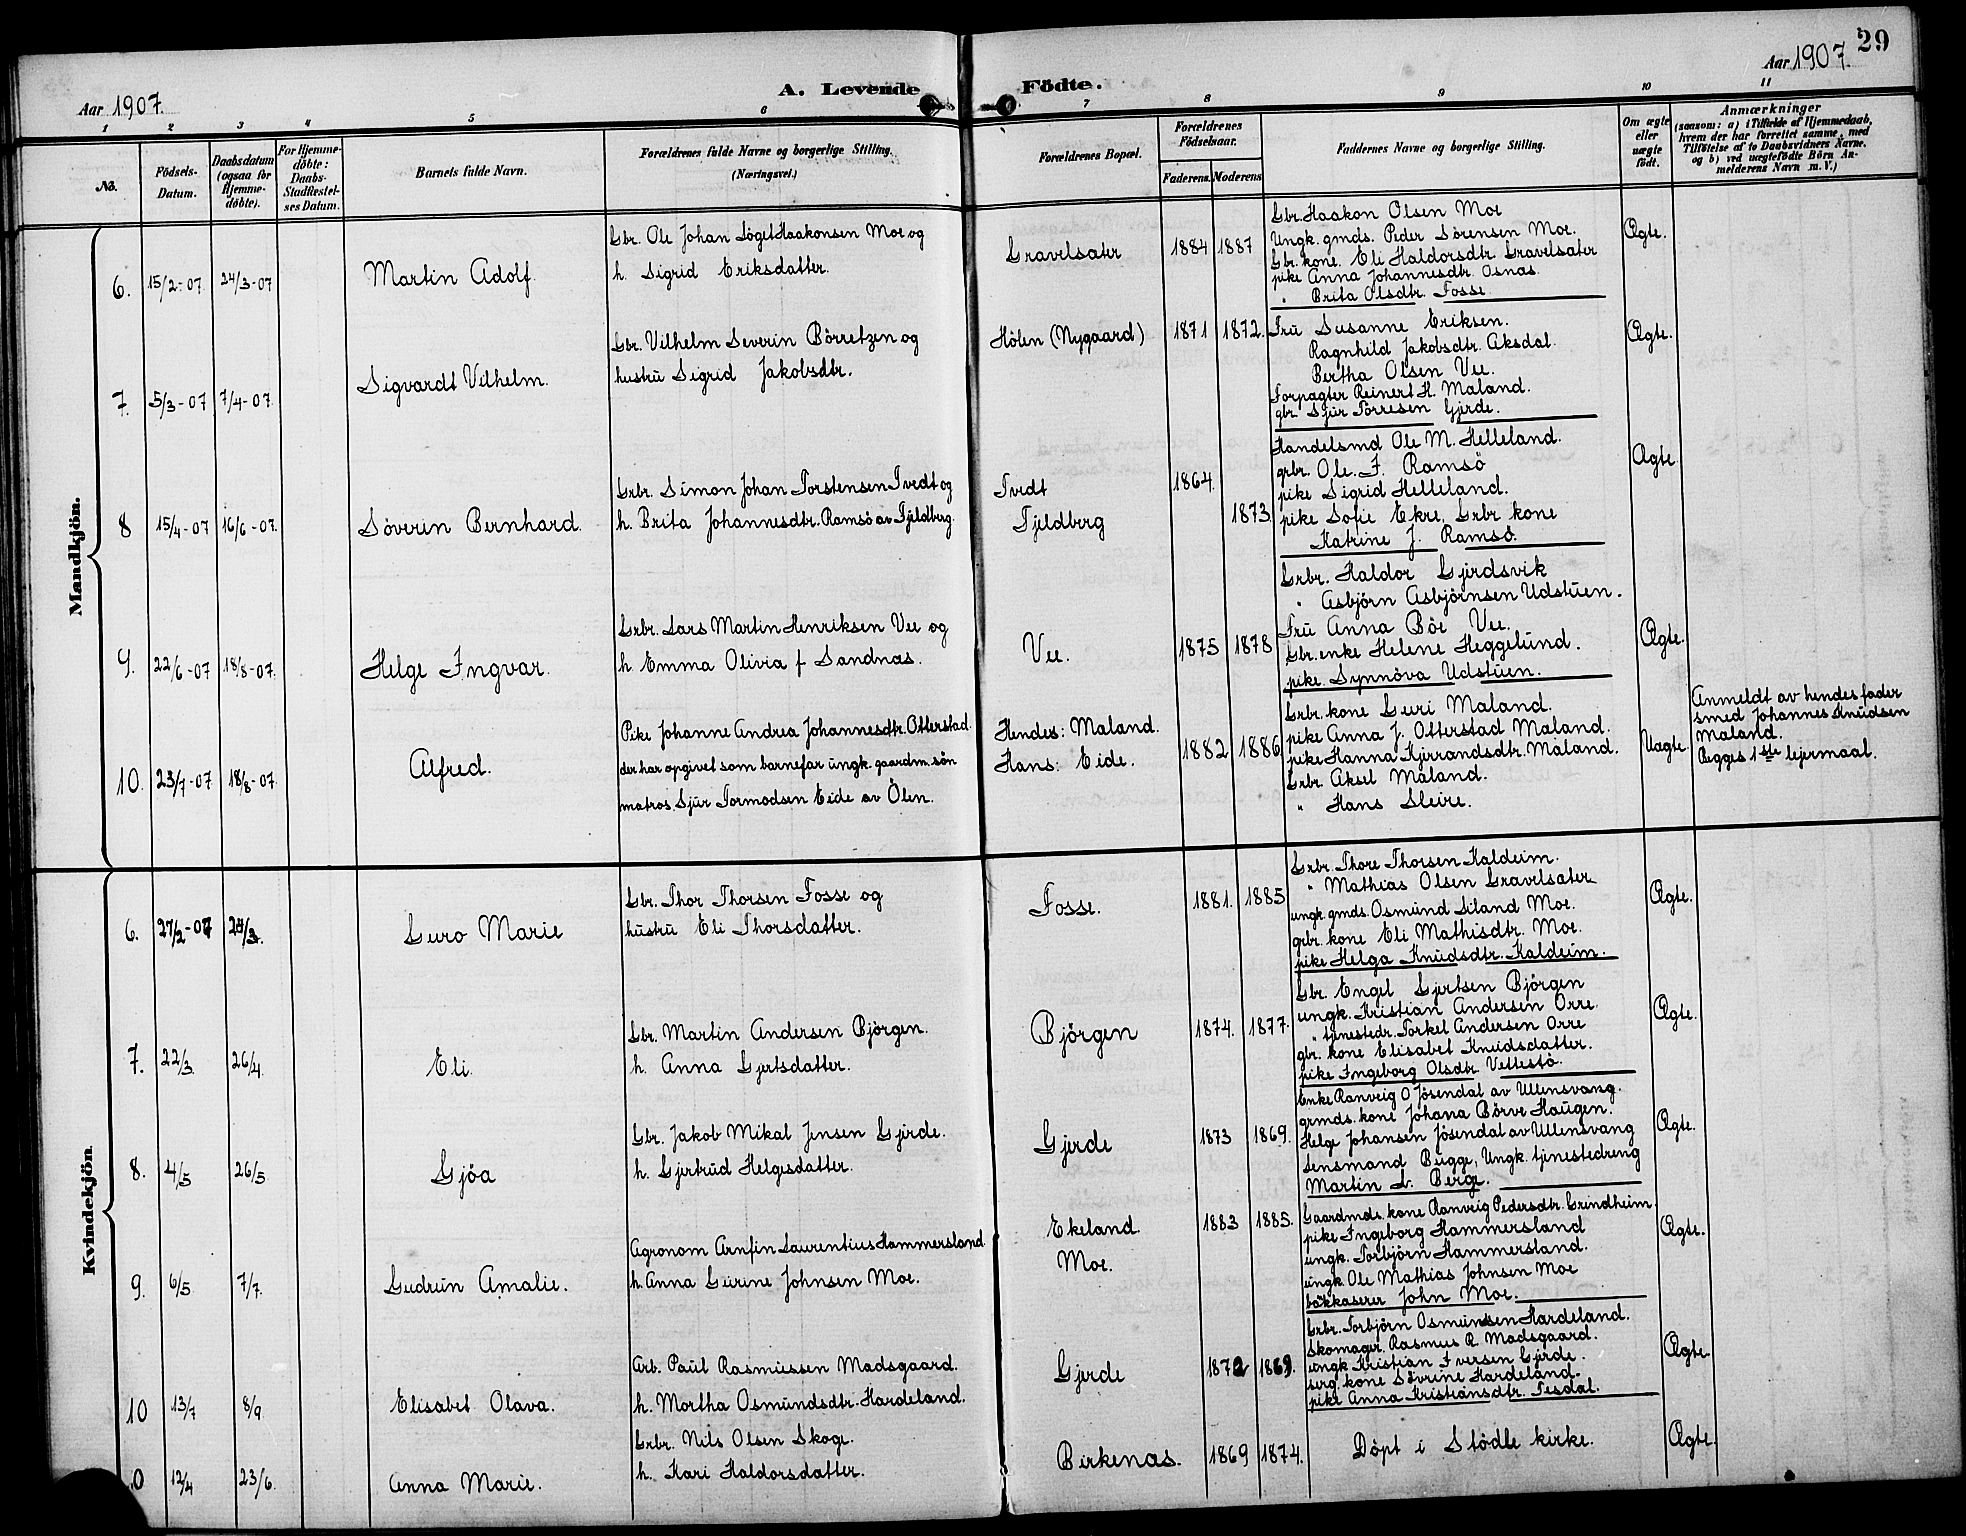 29
Aar 1907. A. Levende Födte. Aar 1907.
1 2 3 4 5 6 7 8 9 10 11
No.
Födsels-Datum.
Daabsdatum (ogsaa for Hjemme-döbte).
For Hjemme-döbte: Daabs-Stadfæstel-ses Datum.
Barnets fulde Navn.
Forældrenes fulde Navne og borgerlige Stilling.
(Næringsvei.)
Forældrenes Bopæl.
Forældrenes Födselsaar.
Faderens. Moderens
Faddernes Navne og borgerlige Stilling.
Om ægte eller uægte födt.
Anmærkninger
(saasom: a) i Tilfælde af Hjemmedaab,
hvem der har forrettet samme, med
Tilföielse af to Daabsvidners Navne,
og b) ved uægtefödte Börn An-
melderens Navn m. V.)
Mandkjön.
6. 15/2-07 24/3-07 Martin Adolf.
Gbr. Ole Johan Löget Haakonsen Moe og
h. Sigrid Eriksdatter.
Gravelsæter 1884 1887
Gbr. Haakon Olsen Moe
Ungk. gmds. Peder Sörensen Moe.
Gbr. kone. Eli Haldorsdtr Gravelsæter
pike Anna Johannesdtr. Osnæs.
" Brita Olsdtr. Fosse.
Ægte.
7. 5/3-07 7/4-07. Sigvardt Vilhelm.
Gbr. Vilhelm Severin Börretzen og
hustru Sigrid Jakobsdtr.
Hölen (Nygaard) 1871 1872.
Fru Susanne Eriksen.
Ragnhild Jakobsdtr. Aksdal.
Bertha Olsen Vee.
Forpagter Reinert H. Mæland.
gbr. Sjur Torresen Gjerde.
Ægte.
8 15/4-07 16/6-07. Söverin Bernhard.
Grbr. Simon Johan Torstensen Tvedt og
h. Brita Johannesdtr. Ramsö av Fjeldberg.
Tvedt
Fjeldberg
1864. 1873
Handelsmd Ole M. Helleland.
grbr. Ole. J. Ramsö
pike Sigrid Helleland.
pike Sofie Ekre, Grbr kone
Katrine J. Ramsö.
Ægte.
9. 22/6-07 18/8-07. Helge Ingvar.
Grbr. Lars Martin Henriksen Vee og
h Emma Olivia f Sandnæs.
Vee. 1875 1878
Grbr. Haldor Gjerdsvik
" Asbjörn Asbjörnsen Udstuen.
Fru Anna Böe Vee.
Gbr. enke Helene Heggelund.
pike. Synnöva Udstuen.
Ægte.
10. 23/7-07 18/8-07. Alfred.
Pike Johanne Andrea Johannesdtr. Otterstad.
der har opgivet som barnefar ungk. gaardm. sön
matros Sjur Tormodsen Eide av Ölen.
Hendes: Mæland.
Hans: Eide.
1882 1886
Grbr. kone Guri Mæland.
pike Anna J. Otterstad Mæland.
pike Hanna Kjerrandsdtr. Mæland.
Grbr. Aksel Mæland.
" Hans Sleire.
Uægte
Anmeldt av hendes fader
smed Johannes Knudsen
Mæland.
Begges 1ste lejermaal.
Kvindekjön.
6. 27/2-07 29/3. Guro Marie
Gbr. Thor Thorsen Fosse og
hustru Eli Thorsdatter.
Fosse. 1881. 1885
Grbr. Thore Thorsen Kaldeim.
" Mathias Olsen Gravelsæter
ungk. gmds. Osmund Liland Moe.
grbr. kone Eli Mathisdtr. Moe.
pike Helga Knudsdtr. Kaldeim.
Ægte.
7. 22/3. 26/4. Eli.
Gbr. Martin Andersen Björgen.
h. Anna Gjertsdatter.
Björgen 1874. 1877.
Gbr. Engel Gjertsen Björgen
ungk. Kristian Andersen Orre.
" tjenestedr. Torkel Andersen Orre
gbr. kone Elisabet Knudsdatter.
pike Ingeborg Olsdtr Vellestö.
Ægte.
8. 4/5 26/5 Gjöa
Gbr. Jakob Mikal Jensen Gjerde.
h. Gjertrud Helgesdatter.
Gjerde 1873 1869.
Enke Ranveig O Jösendal av Ullensvang.
grmds. kone Johana Börve Haugen.
Helge Johansen Jösendal av Ullensvang
Lensmand Bugge, Ungk. tjenestedreng
Martin L. Berge.
Ægte.
9. 6/5. 7/7. Gudrun Amalie.
Agronom Arnfin Laurentius Hammersland
h. Anna Gurine Johnsen Moe.
Ekeland
Moe.
1883 1885.
Gaardmds. kone Ranveig Pedersdtr. Grindheim.
pike Ingeborg Hammersland
ungk. Torbjörn Hammersland.
ungk. Ole Mathias Johnsen Moe
bökkaserer John Moe.
Ægte.
10 13/7 8/9. Elisabet Olava.
Arb. Paul Rasmussen Madsgaard.
h. Mortha Osmundsdtr. Hardeland.
Gjerde 1872 1869.
Grbr. Torbjörn Osmundsen Hardeland.
Skomager. Rasmus R. Madsgaard.
ungk Kristian Iversen Gjerde.
kone Sövrine Hardeland.
pike Anna Kristiansdtr. Tesdal.
Ægte.
0 12/4 23/6. Anna Marie.
Grbr. Nils Olsen Skoge.
h. Kari Haldorsdatter.
Birkenæs. 1869 1874.
Döpt i Stödle kirke.
Ægte.